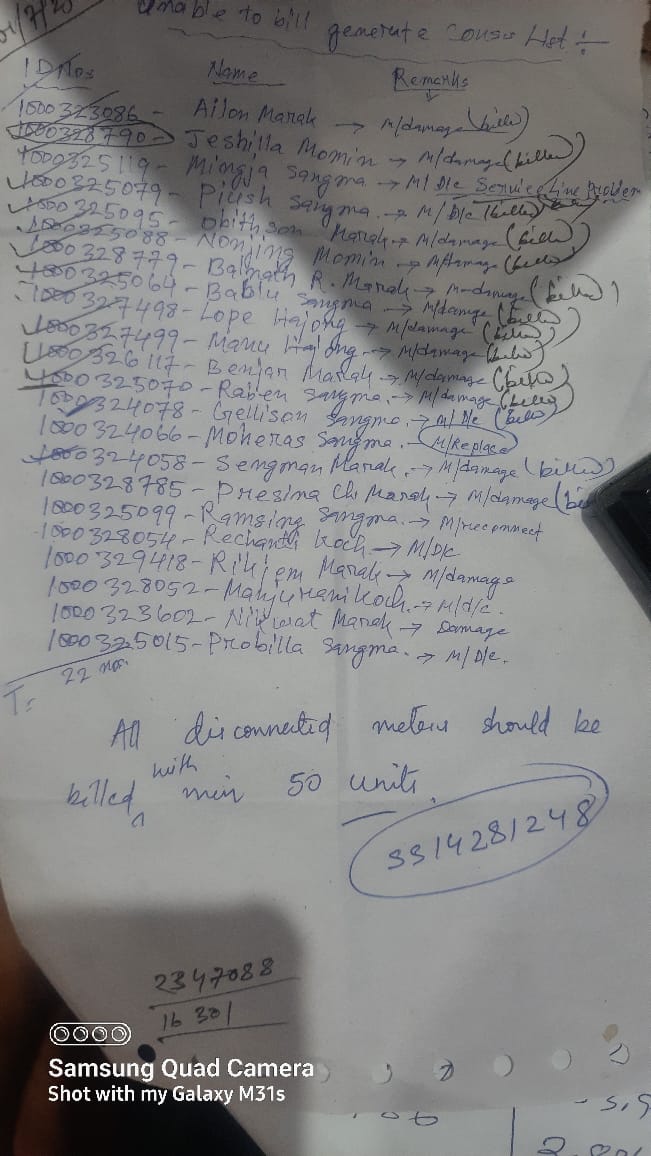 Unable to bill generate Consu List :-
ID Nos Name Remarks
1000323086 - Ailon Marak → M/damage (billed)
1000328790 - Jeshilla Momin → M/damage (billed)
1000325119 - Mingja Sangma → M/D/c Service Line Problem
1000325079 - Piush Sangma → M/D/c (billed)
1000325095 - Obithson Marak → M/damage (billed)
1000325088 - Nonjing Momin → M/damage (billed)
1000328779 - Balnath R. Marak → M-damage (billed)
1000325064 - Bablu Sangma → M/damage (billed)
1000327498 - Lope Hajong → M/damage (billed)
1000327499 - Manu Hajong → M/damage (billed)
1000326117 - Benjan Marak → M/damage (billed)
1000325070 - Raben Sangma → M/damage (billed)
1000324078 - Gellison Sangma → M/D/c (billed)
1000324066 - Moheras Sangma - M/Replace
1000324058 - Sengman Marak → M/damage (billed)
1000328785 - Presina Ch. Marak → M/damage (bi
1000325099 - Ramsing Sangma → M/reconnect
1000328054 - Rechanti Koch → M/D/c
1000329418 - Rikjem Marak → M/damage
1000328052 - Manju Rani Koch → M/d/c.
1000323602 - Marak → Damage
1000325015 - Probilla Sangma. → M/D/c.
T = 22 nos.
All disconnected meters should be
billed with min 50 units.
3314281248
2347088
16301
Samsung Quad Camera
Shot with my Galaxy M31s